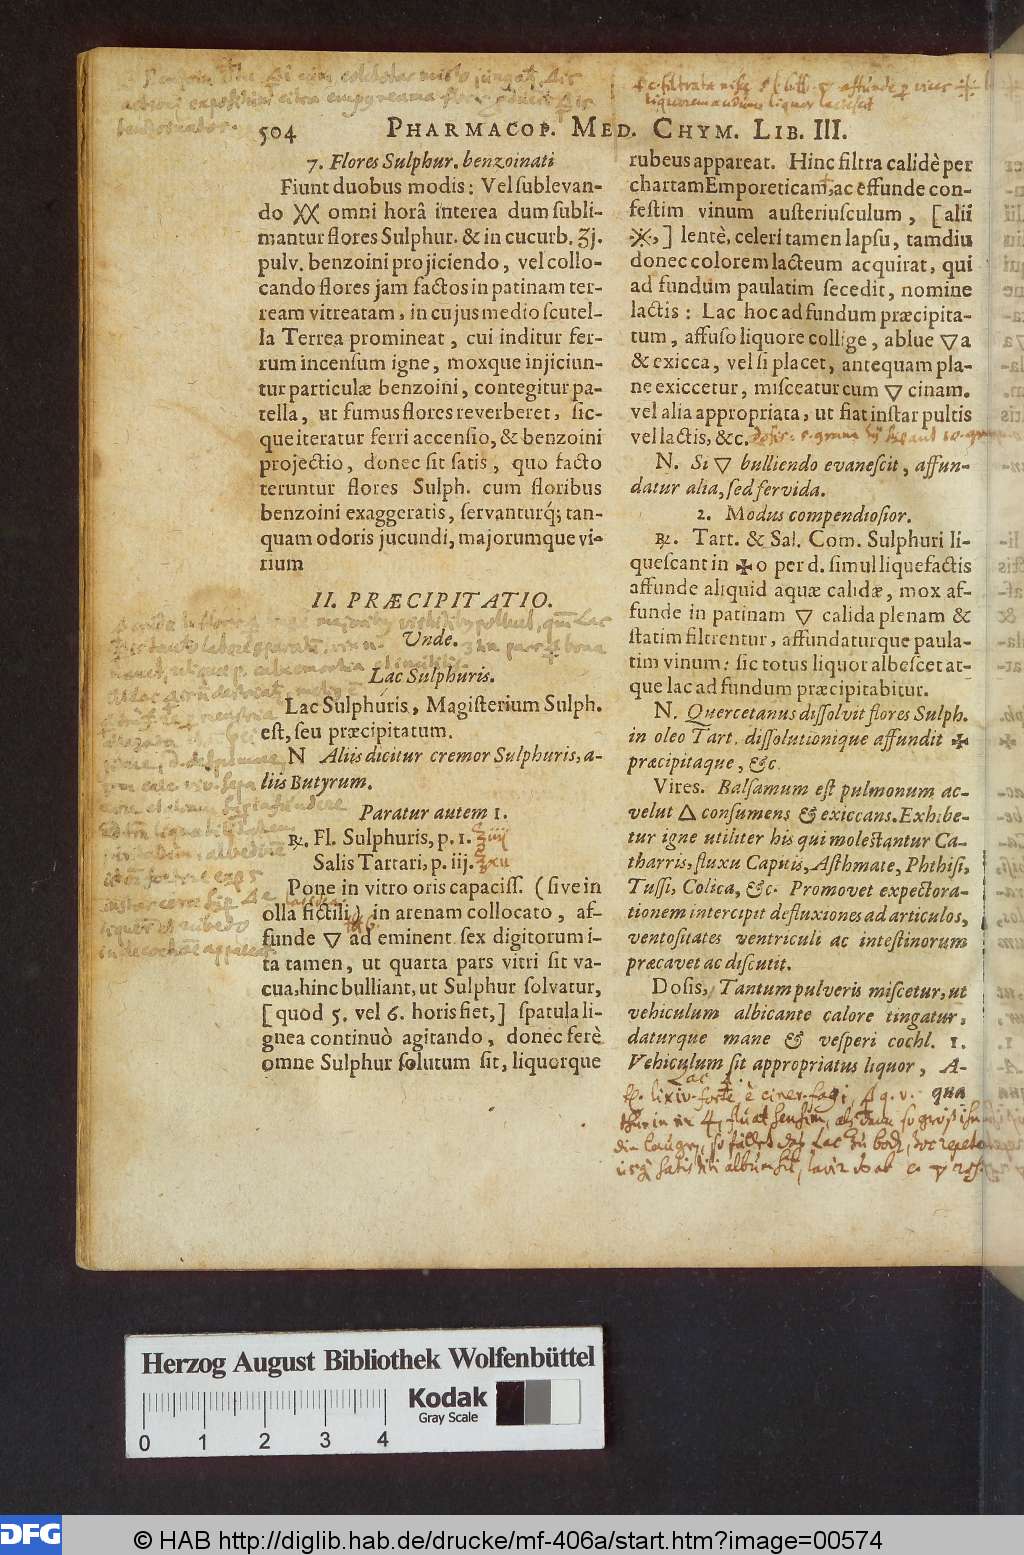 504 PHARMACOP. MED. CHYM. LIB. III.
7. Flores Sulphur. benzoinati
Fiunt duobus modis: Vel sublevan-
do XX omni horâ interea dum subli-
mantur flores Sulphur. & in cucurb. ʒj.
pulv. benzoini projiciendo, vel collo-
cando flores jam factos in patinam ter-
ream vitreatam, in cujus medio scutel-
la Terrea promineat, cui inditur fer-
rum incensum igne, moxque injiciun-
tur particulæ benzoini, contegitur pa-
tella, ut fumus flores reverberet, sic-
que iteratur ferri accensio, & benzoini
projectio, donec sit satis, quo facto
teruntur flores Sulph. cum floribus
benzoini exaggeratis, servanturq́; tan-
quam odoris jucundi, majorumque vi-
rium
II. PRÆCIPITATIO.
Unde.
Lac Sulphuris.
Lac Sulphuris, Magisterium Sulph.
est, seu præcipitatum.
N Aliis dicitur cremor Sulphuris, a-
liis Butyrum.
Paratur autem 1.
℞. Fl. Sulphuris, p. 1. ʒiiij
Salis Tartari, p. iij. ʒxii
Pone in vitro oris capaciss. (sive in
olla fictili) in arenam collocato, af-
funde ▽ ad eminent sex digitorum i-
ta tamen, ut quarta pars vitri sit va-
cua, hinc bulliant, ut Sulphur solvatur,
[quod 5. vel 6. horis fiet,] spatula li-
gnea continuò agitando, donec ferè
omne Sulphur solutum sit, liquorque
rubeus appareat. Hinc filtra calidè per
chartam Emporeticam, ac effunde con-
festim vinum austeriusculum, [alii
※,] lentè, celeri tamen lapsu, tamdiu
donec colorem lacteum acquirat, qui
ad fundum paulatim secedit, nomine
lactis: Lac hoc ad fundum præcipita-
tum, affuso liquore collige, ablue ▽a
& exicca, vel si placet, antequam pla-
ne exiccetur, misceatur cum ▽ cinam.
vel alia appropriata, ut fiat instar pultis
vel lactis, &c.
N. Si ▽ bulliendo evanescit, affun-
datur alia, sed fervida.
2. Modus compendiosior.
℞. Tart. & Sal. Com. Sulphuri li-
quescant in ✠o per d. simul liquefactis
affunde aliquid aquæ calidæ, mox af-
funde in patinam ▽ calida plenam &
statim filtrentur, affundaturque paula-
tim vinum: sic totus liquor albescet at-
que lac ad fundum præcipitabitur.
N. Quercetanus dissolvit flores Sulph.
in oleo Tart. dissolutionique affundit ✠
præcipitaque, &c.
Vires. Balsamum est pulmonum ac-
velut △ consumens & exiccans. Exhibe-
tur igne utiliter his qui molestantur Ca-
tharris, fluxu Capitis, Asthmate, Phthisi,
Tussi, Colica, &c. Promovet expectora-
tionem intercipit defluxiones ad articulos,
ventositates ventriculi ac intestinorum
præcavet ac discutit.
Dosis, Tantum pulveris miscetur, ut
vehiculum albicante calore tingatur,
daturque mane & vesperi cochl. 1.
Vehiculum sit appropriatus liquor, A-
qua
Herzog August Bibliothek Wolfenbüttel
Kodak
Gray Scale
0 1 2 3 4
DFG
© HAB http://diglib.hab.de/drucke/mf-406a/start.htm?image=00574